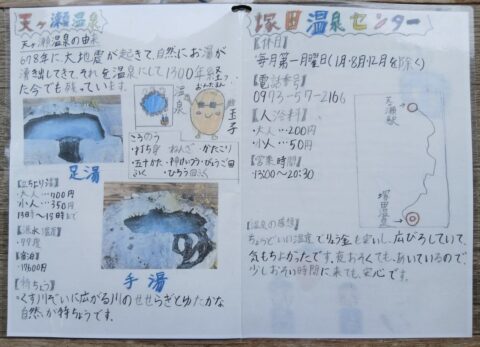 天ヶ瀬温泉
天ヶ瀬温泉の由来
678年に大地震が起きて、自然にお湯が
湧き出してきて、それを温泉にして1300年経っ
た今でも残っています。
温泉
玉子
こうのう
・打ち身 ・ねんざ ・かたこり
・五十かた ・神けいつう
足湯
【立ちより湯】
大人…700円
小人…350円
13時〜15時まで
【源泉温度】
・99度
【宿泊】
【特ちょう】
・くす川ぞいに広がる川のせせらぎとゆたかな
自然が特ちょうです。
手湯
塚田温泉センター
【休日】
毎月第一月曜日(1月・8月・12月を除く)
【電話番号】
0973-57-2166
【入浴料】
・大人…200円
・小人…50円
【営業時間】
13:00〜20:30
天瀬駅
塚田温泉
【温泉の感想】
ちょうどいい温度でりょう金も安いし、広びろしていて、
気もちよかったです。夜おそくても、あいているので、
少しおそい時間に来ても、安心です。